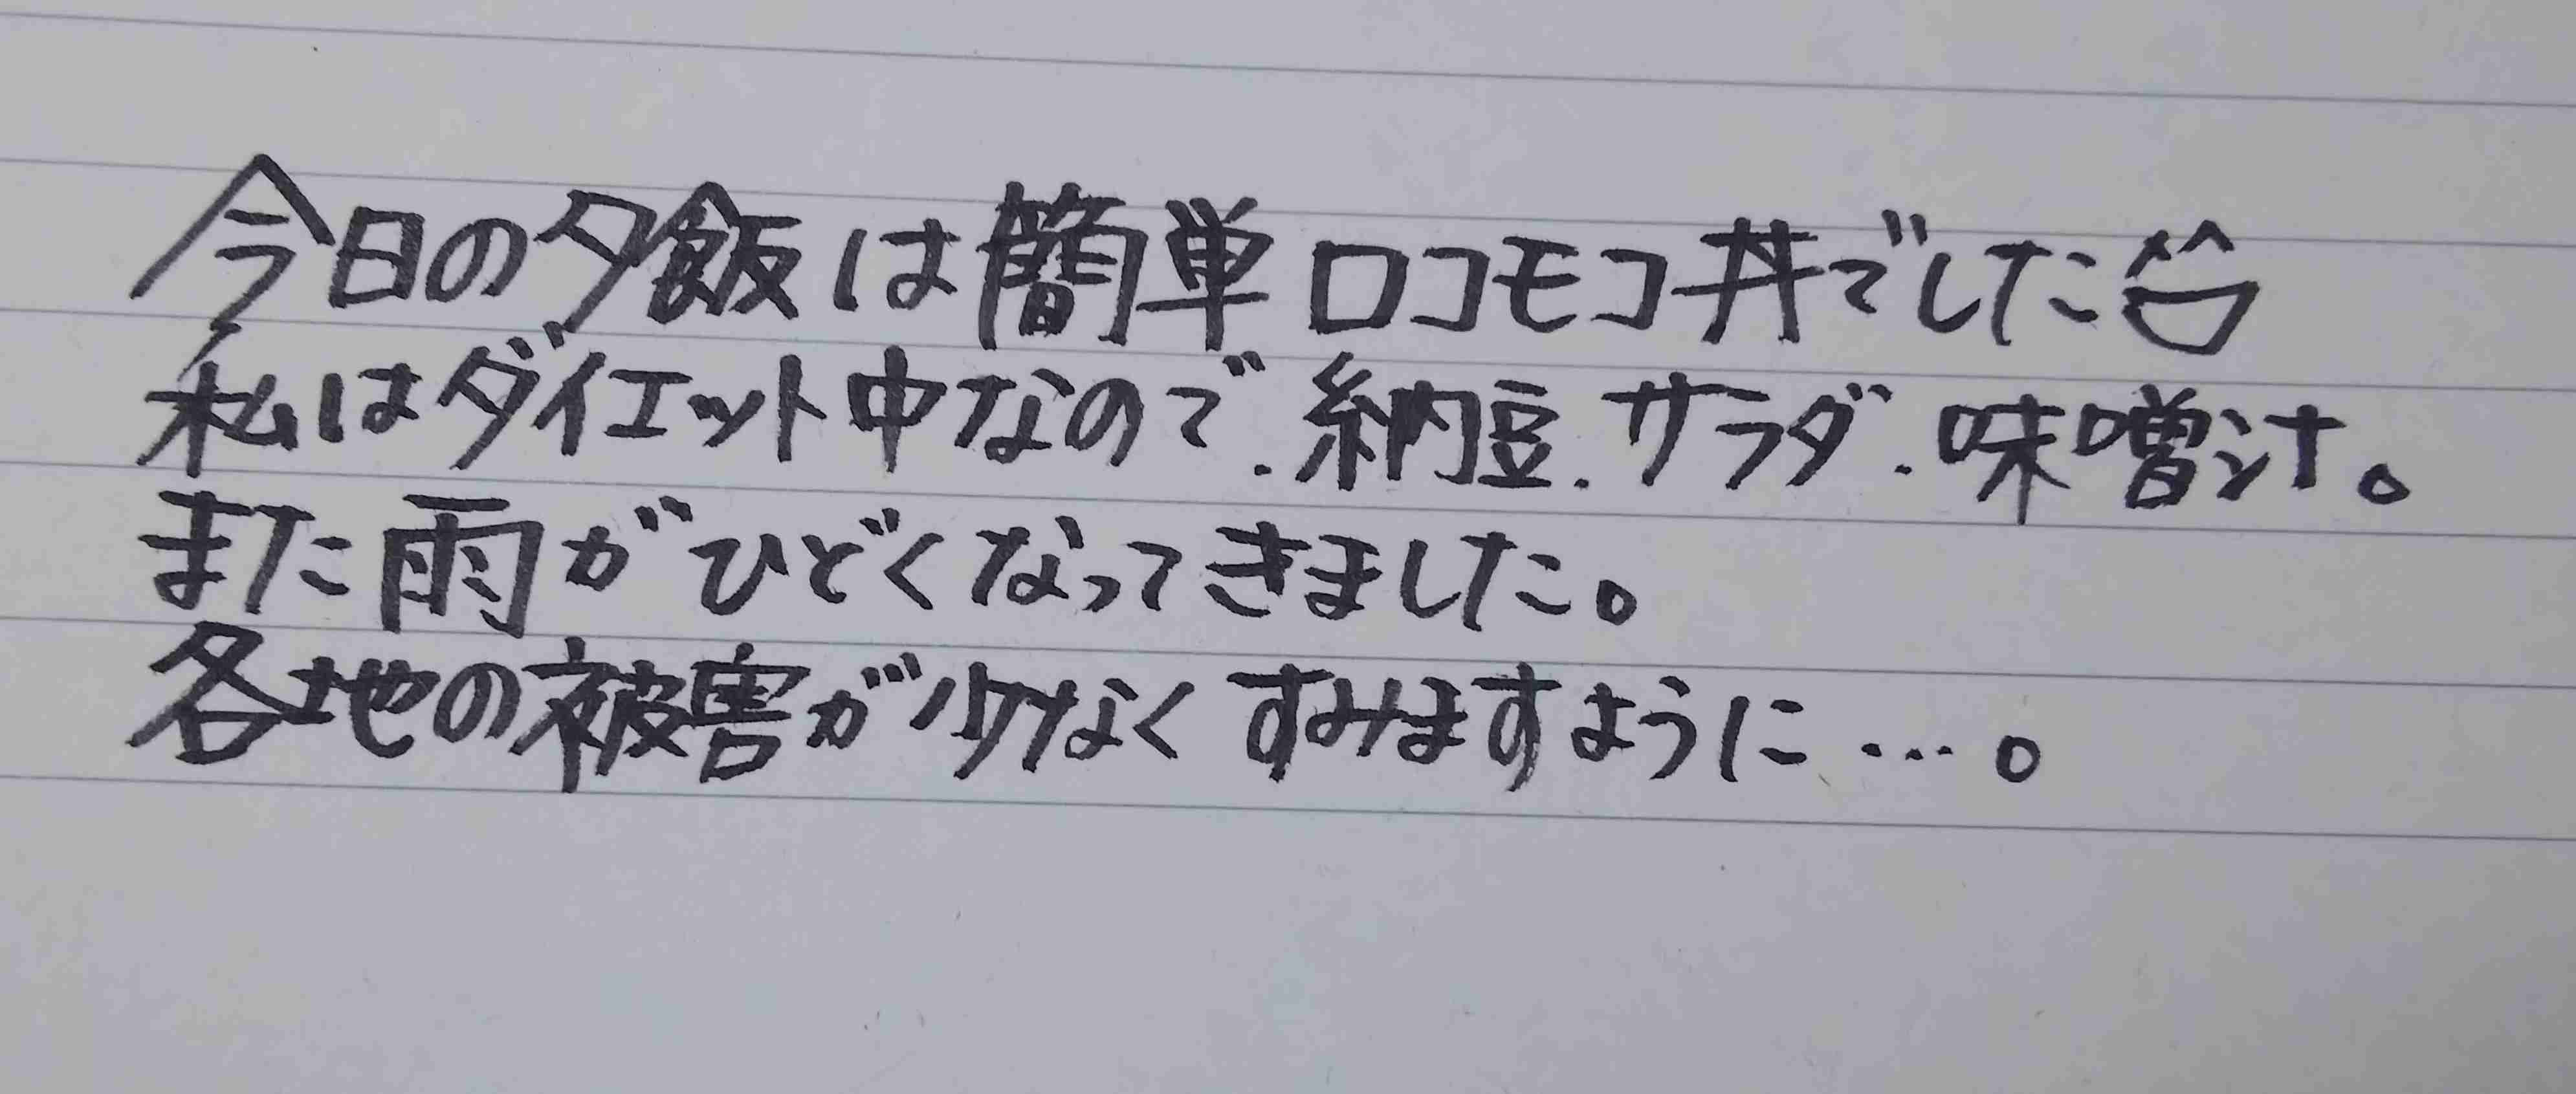 今日の夕飯は簡単ロコモコ丼でした^^
私はダイエット中なので.納豆.サラダ.味噌汁。
また雨がひどくなってきました。
各地の被害が少なくすみますように…。